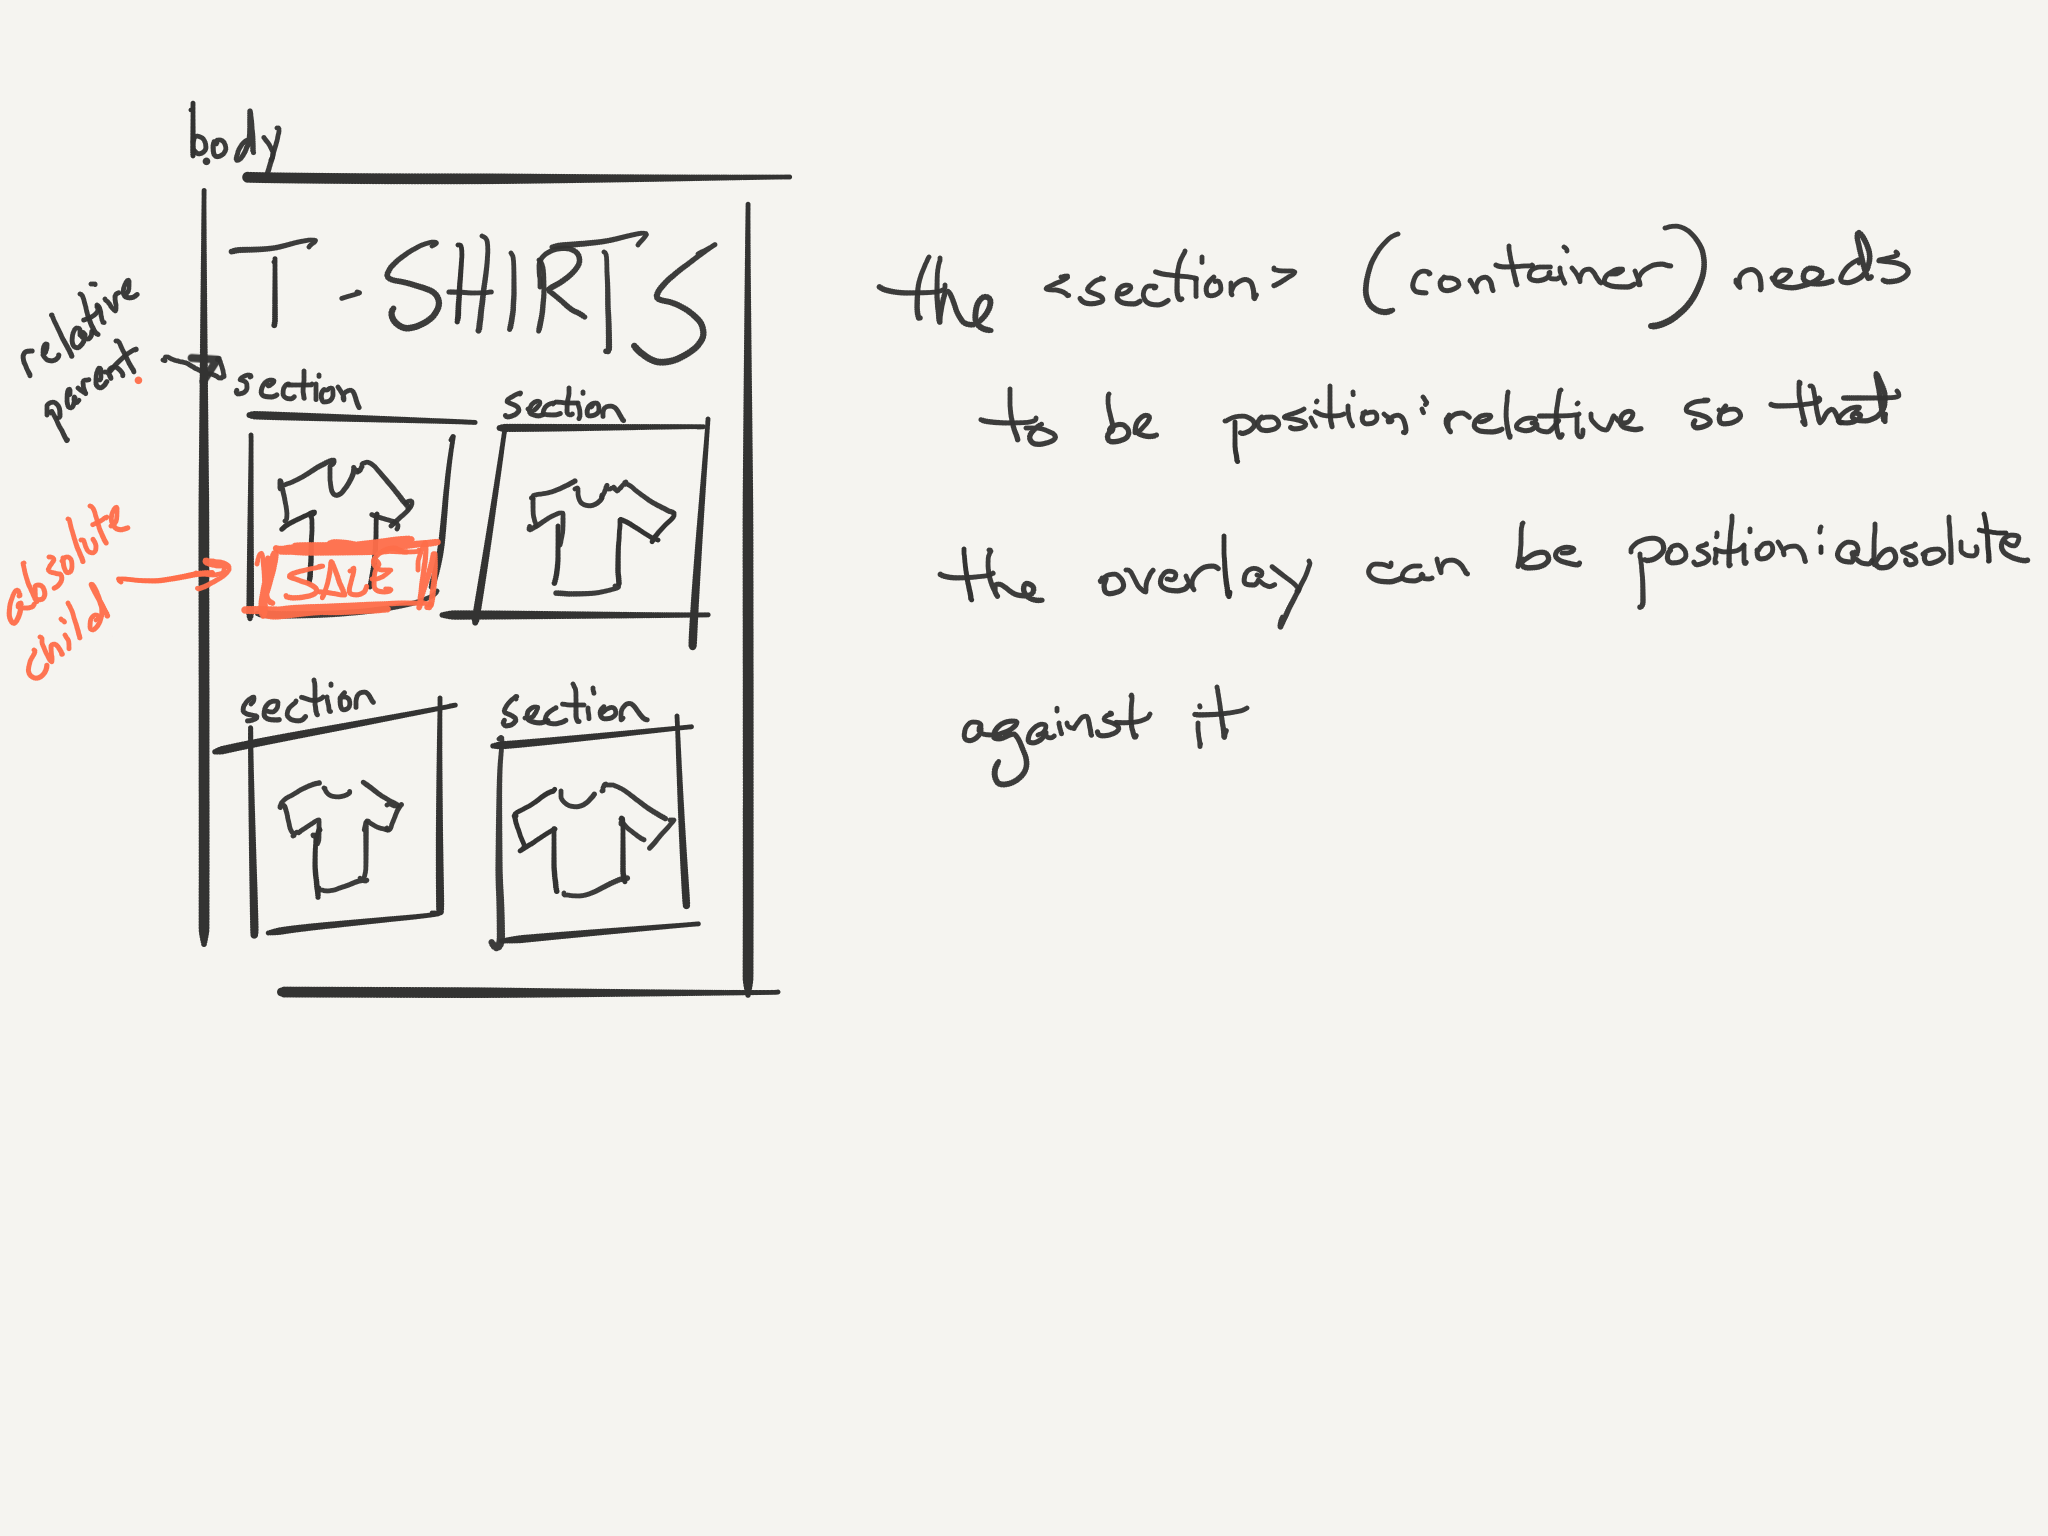 body
T-SHIRTS
relative
parent.
section
section
absolute
child
SALE
section
section
the <section> (container) needs
to be position:relative so that
the overlay can be position:absolute
against it